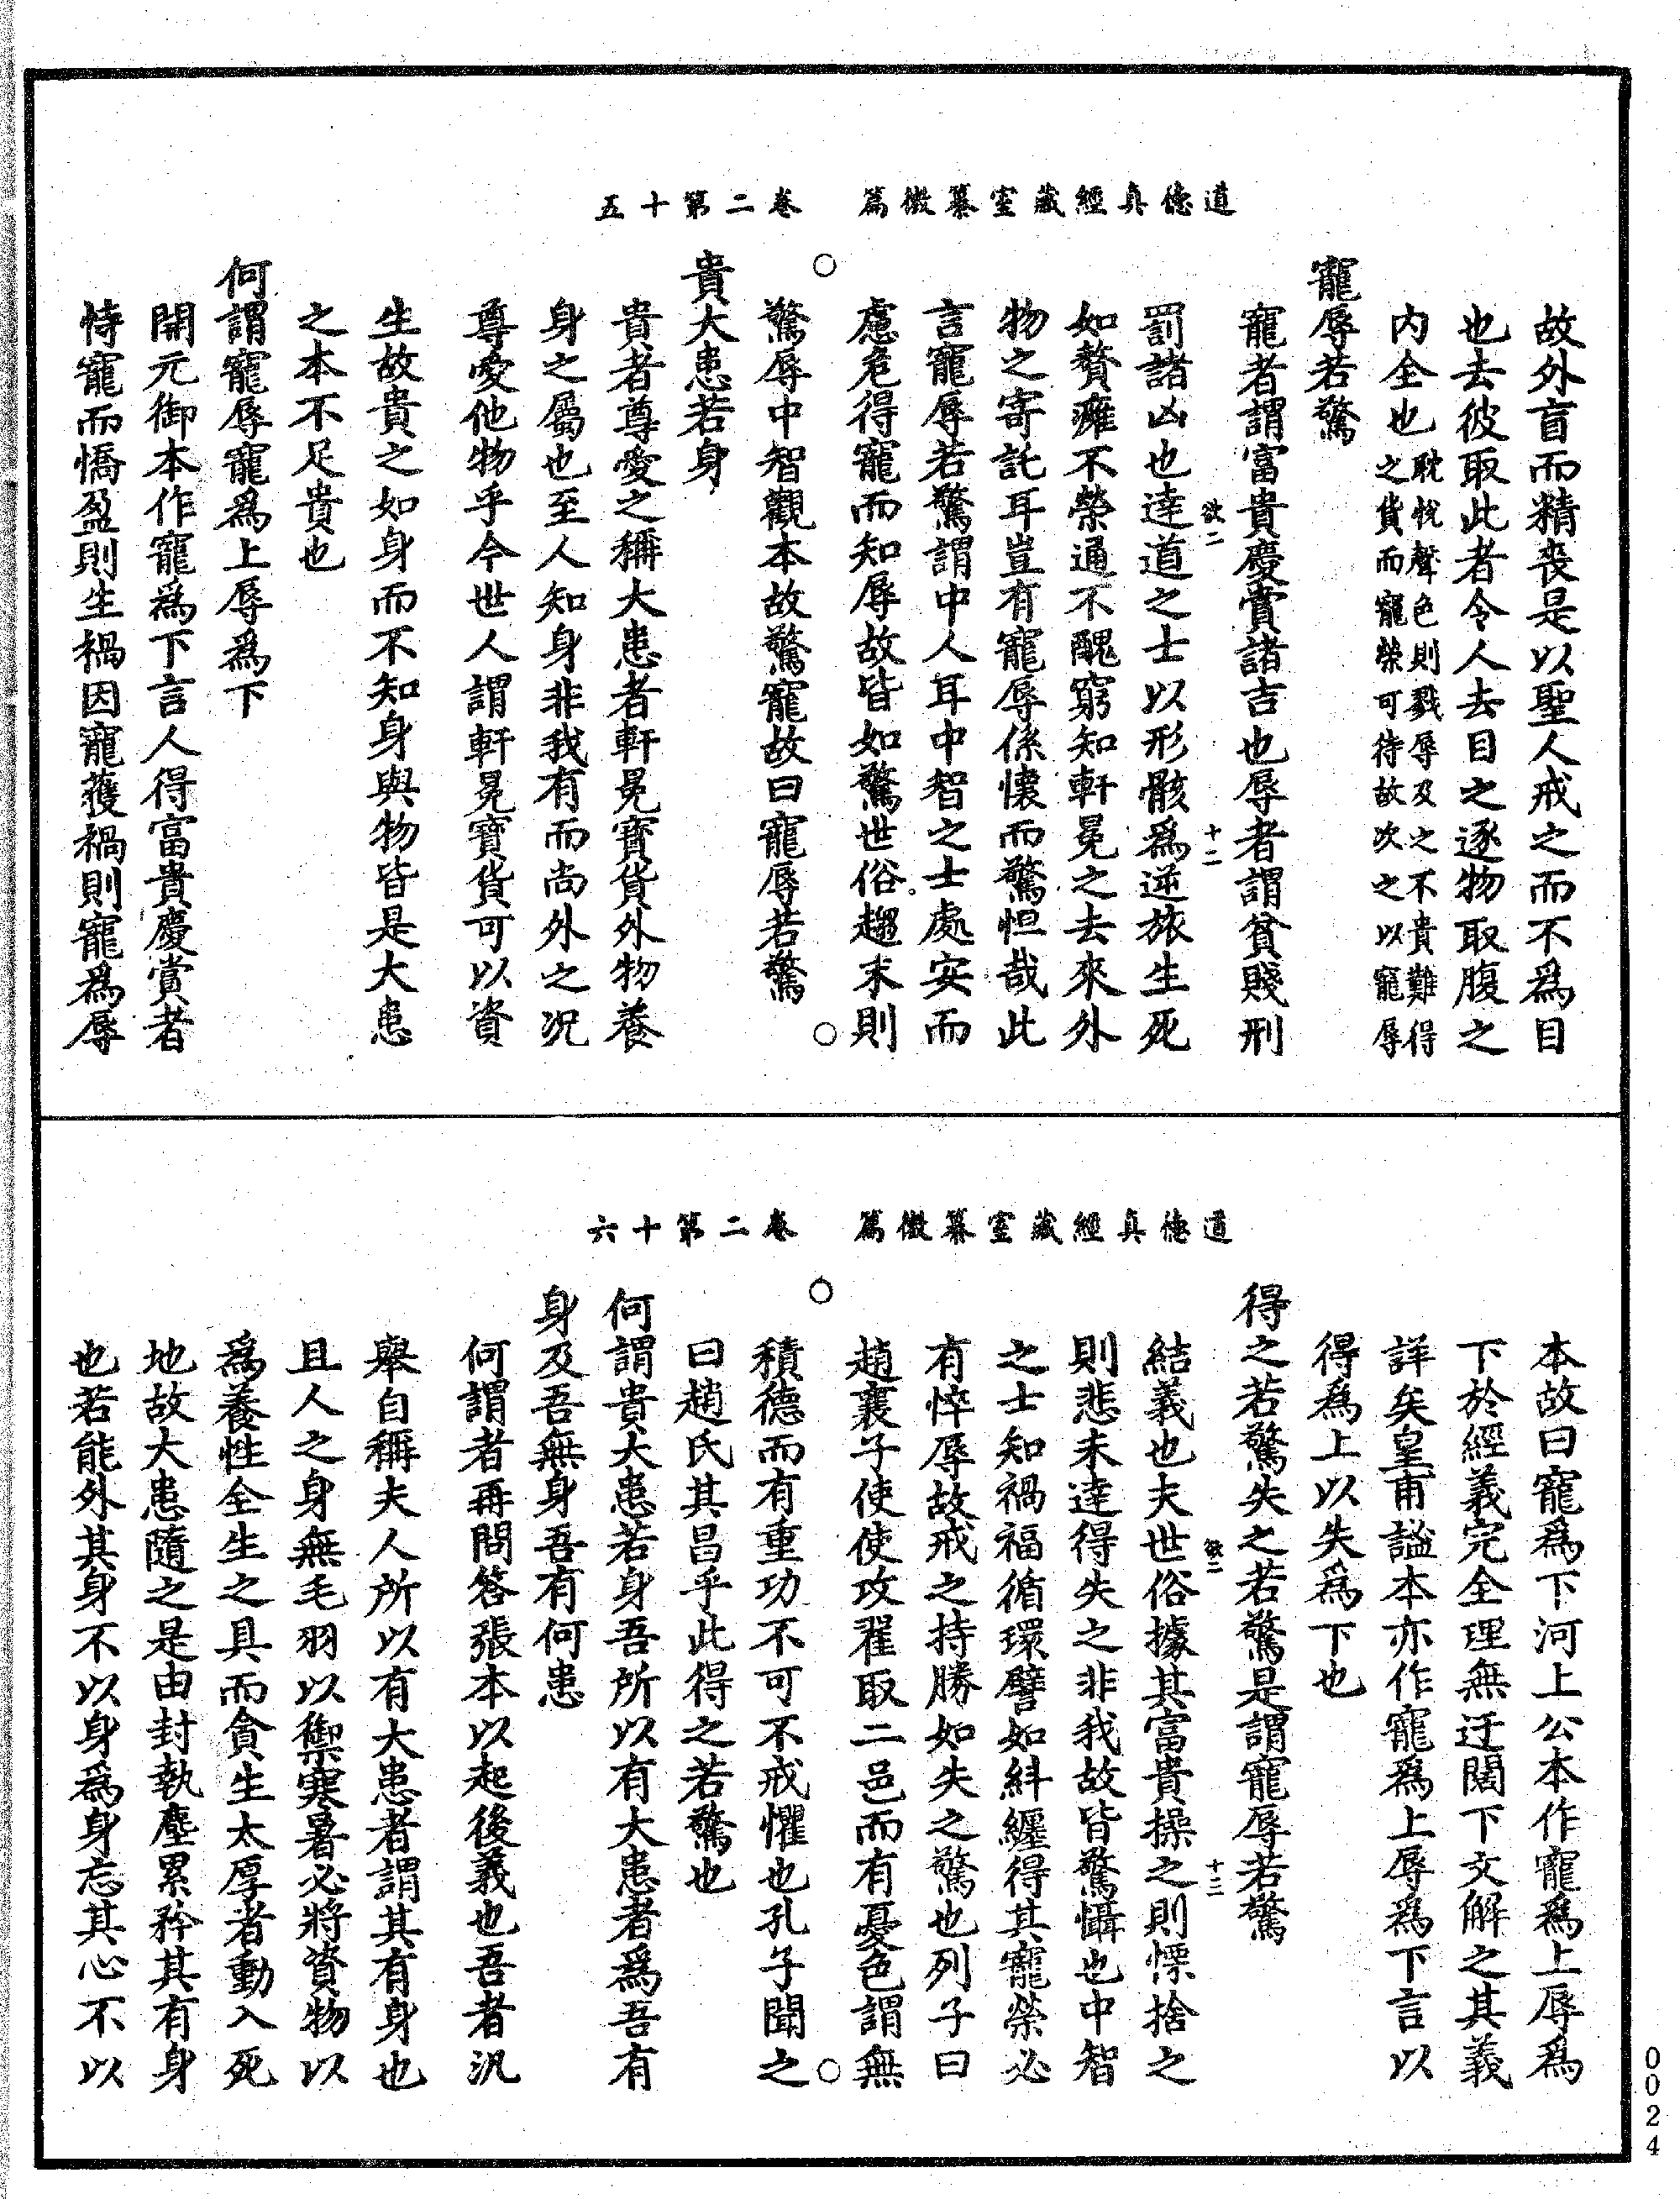 道德真經藏室纂微篇　卷二第十五
故外盲而精喪是以聖人戒之而不爲目
也去彼取此者令人去目之逐物取腹之
内全也耽悅聲色則戮辱及之不貴難得
之貨而寵榮可待故次之以寵辱
寵辱若驚
寵者謂富貴慶賞諸吉也辱者謂貧賤刑
欲二　十二
罰諸凶也達道之士以形骸爲逆旅生死
如贅癰不榮通不醜窮知軒冕之去來外
物之寄託耳豈有寵辱係懷而驚怛哉此
言寵辱若驚謂中人耳中智之士處安而
慮危得寵而知辱故皆如驚世俗趨末則
驚辱中智觀本故驚寵故曰寵辱若驚
貴大患若身
貴者尊愛之稱大患者軒冕寳貨外物養
身之屬也至人知身非我有而尚外之況
尊愛他物乎今世人謂軒冕寳貨可以資
生故貴之如身而不知身與物皆是大患
之本不足貴也
何謂寵辱寵爲上辱爲下
開元御本作寵爲下言人得富貴慶賞者
恃寵而憍盈則生禍因寵獲禍則寵爲辱
道德真經藏室纂微篇　卷二第十六
本故曰寵爲下河上公本作寵爲上辱爲
下於經義完全理無迂闊下文解之其義
詳矣皇甫謐本亦作寵爲上辱爲下言以
得爲上以失爲下也
得之若驚失之若驚是謂寵辱若驚
欲二　十三
結義也夫世俗據其富貴操之則慄捨之
則悲未達得失之非我故皆驚懾也中智
之士知禍福循環譬如糾纆得其寵榮必
有悴辱故戒之持勝如失之驚也列子曰
趙襄子使使攻翟取二邑而有憂色謂無
積德而有重功不可不戒懼也孔子聞之
曰趙氏其昌乎此得之若驚也
何謂貴大患若身吾所以有大患者爲吾有
身及吾無身吾有何患
何謂者再問答張本以起後義也吾者汎
舉自稱夫人所以有大患者謂其有身也
且人之身無毛羽以禦寒暑必將資物以
爲養性全生之具而貪生太厚者動入死
地故大患隨之是由封執塵累矜其有身
也若能外其身不以身爲身忘其心不以
0024